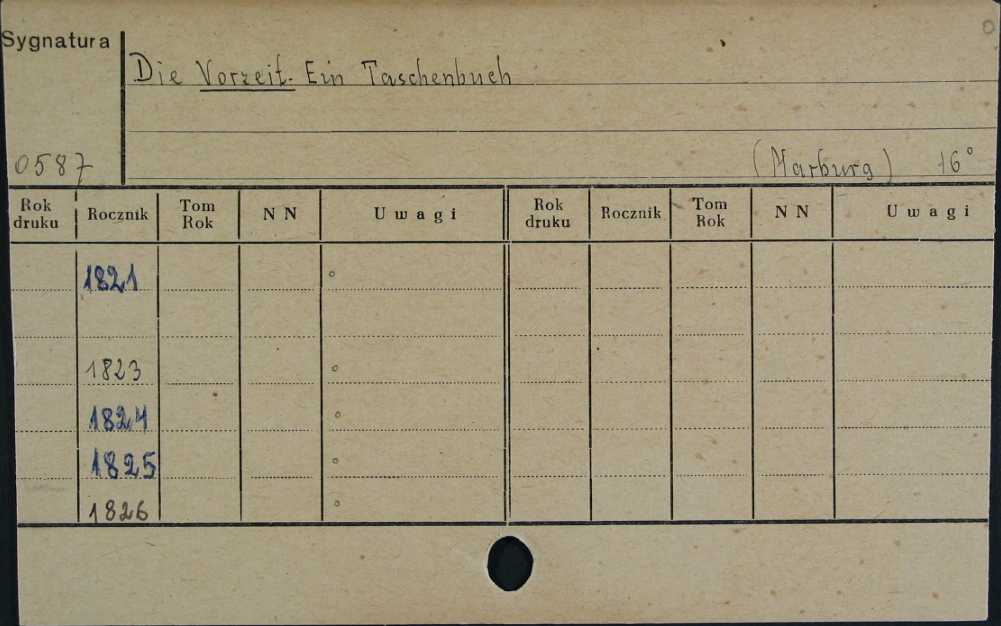 Sygnatura
Die Vorzeit. Ein Taschenbuch
0587
(Marburg) 16°
Rok druku Rocznik Tom Rok NN Uwagi Rok druku Rocznik Tom Rok NN Uwagi
1821 °
1823 °
1824 °
1825 °
1826 °